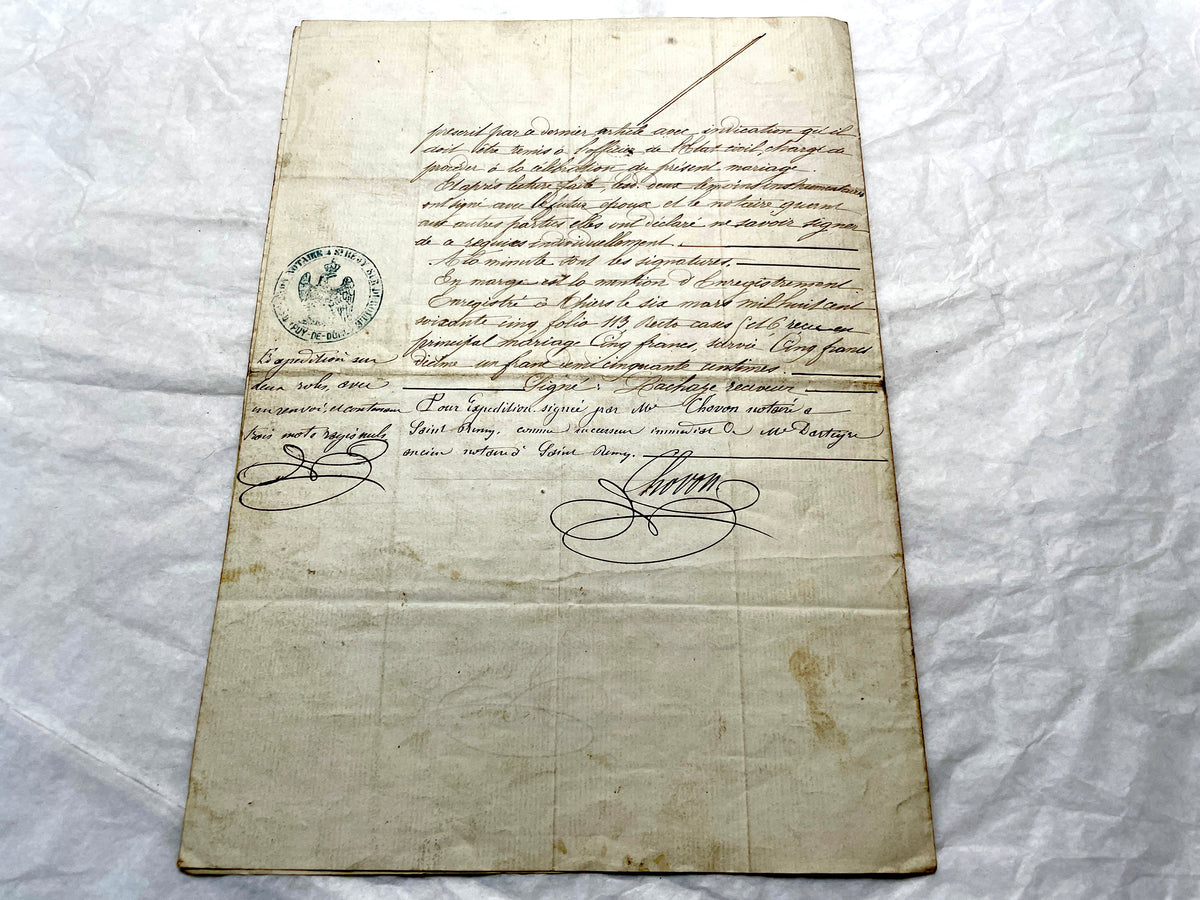 prescrit par ce dernier article avec indication qu'il
doit être remis à l'officier de l'État civil chargé de
procéder à la célébration du présent mariage.
Et après lecture faite, lesd. deux témoins instrumentaires
ont signé avec le futur époux et le notaire quant
aux autres parties elles ont déclaré ne savoir signer
de ce requises individuellement.
A la minute sont les signatures.
En marge est la mention d'Enregistrement
Enregistré à Thiers le six mars mil huit cent
soixante cinq folio 113 Recto cases 5 et 6 reçu en
principal mariage Cinq francs, survie Cinq francs
décime un franc cinquante centimes.
Signé: receveur
Pour Expédition signée par Me Chovon notaire à
Saint Remy, comme successeur immédiat de Me Darteyre
ancien notaire à Saint Remy.
Chovon
NOTAIRE A ST REMY SUR DUROLLE
PUY-DE-DOME
L'Expédition sur
deux roles, avec
un renvoi, et contenant
trois mots rayés nuls